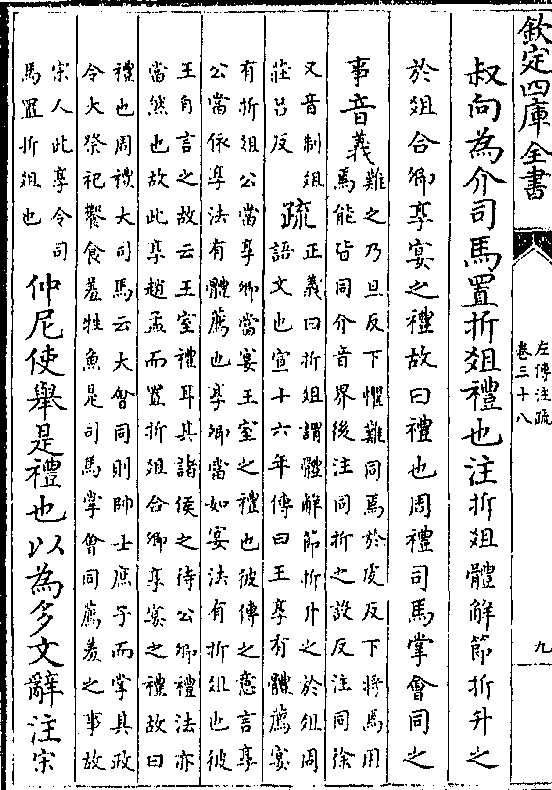 欽定四庫全書
左傳注疏
卷三十八
九
叔向為介司馬置折俎禮也注折俎體解節折升之
於俎合卿享宴之禮故曰禮也周禮司馬掌會同之
事音義難之乃旦反下懼難同焉於虔反下將焉用
焉能皆同介音界後注同折之設反注同徐
又音制俎
莊呂反
疏正義曰折俎謂體解節折升之於俎周
語文也宣十六年傳曰王享有體薦宴
有折俎公當享卿當宴王室之禮也彼傳之意言享
公當依享法有體薦也享卿當如宴法有折俎也彼
王自言之故云王室禮耳其諸侯之待公卿禮法亦
當然也故此享趙孟而置折俎合卿享宴之禮故曰
禮也周禮大司馬云大會同則帥士庶子而掌其政
令大祭祀饗食羞牲魚是司馬掌會同薦羞之事故
宋人此享令司
馬置折俎也
仲尼使舉是禮也以為多文辭注宋